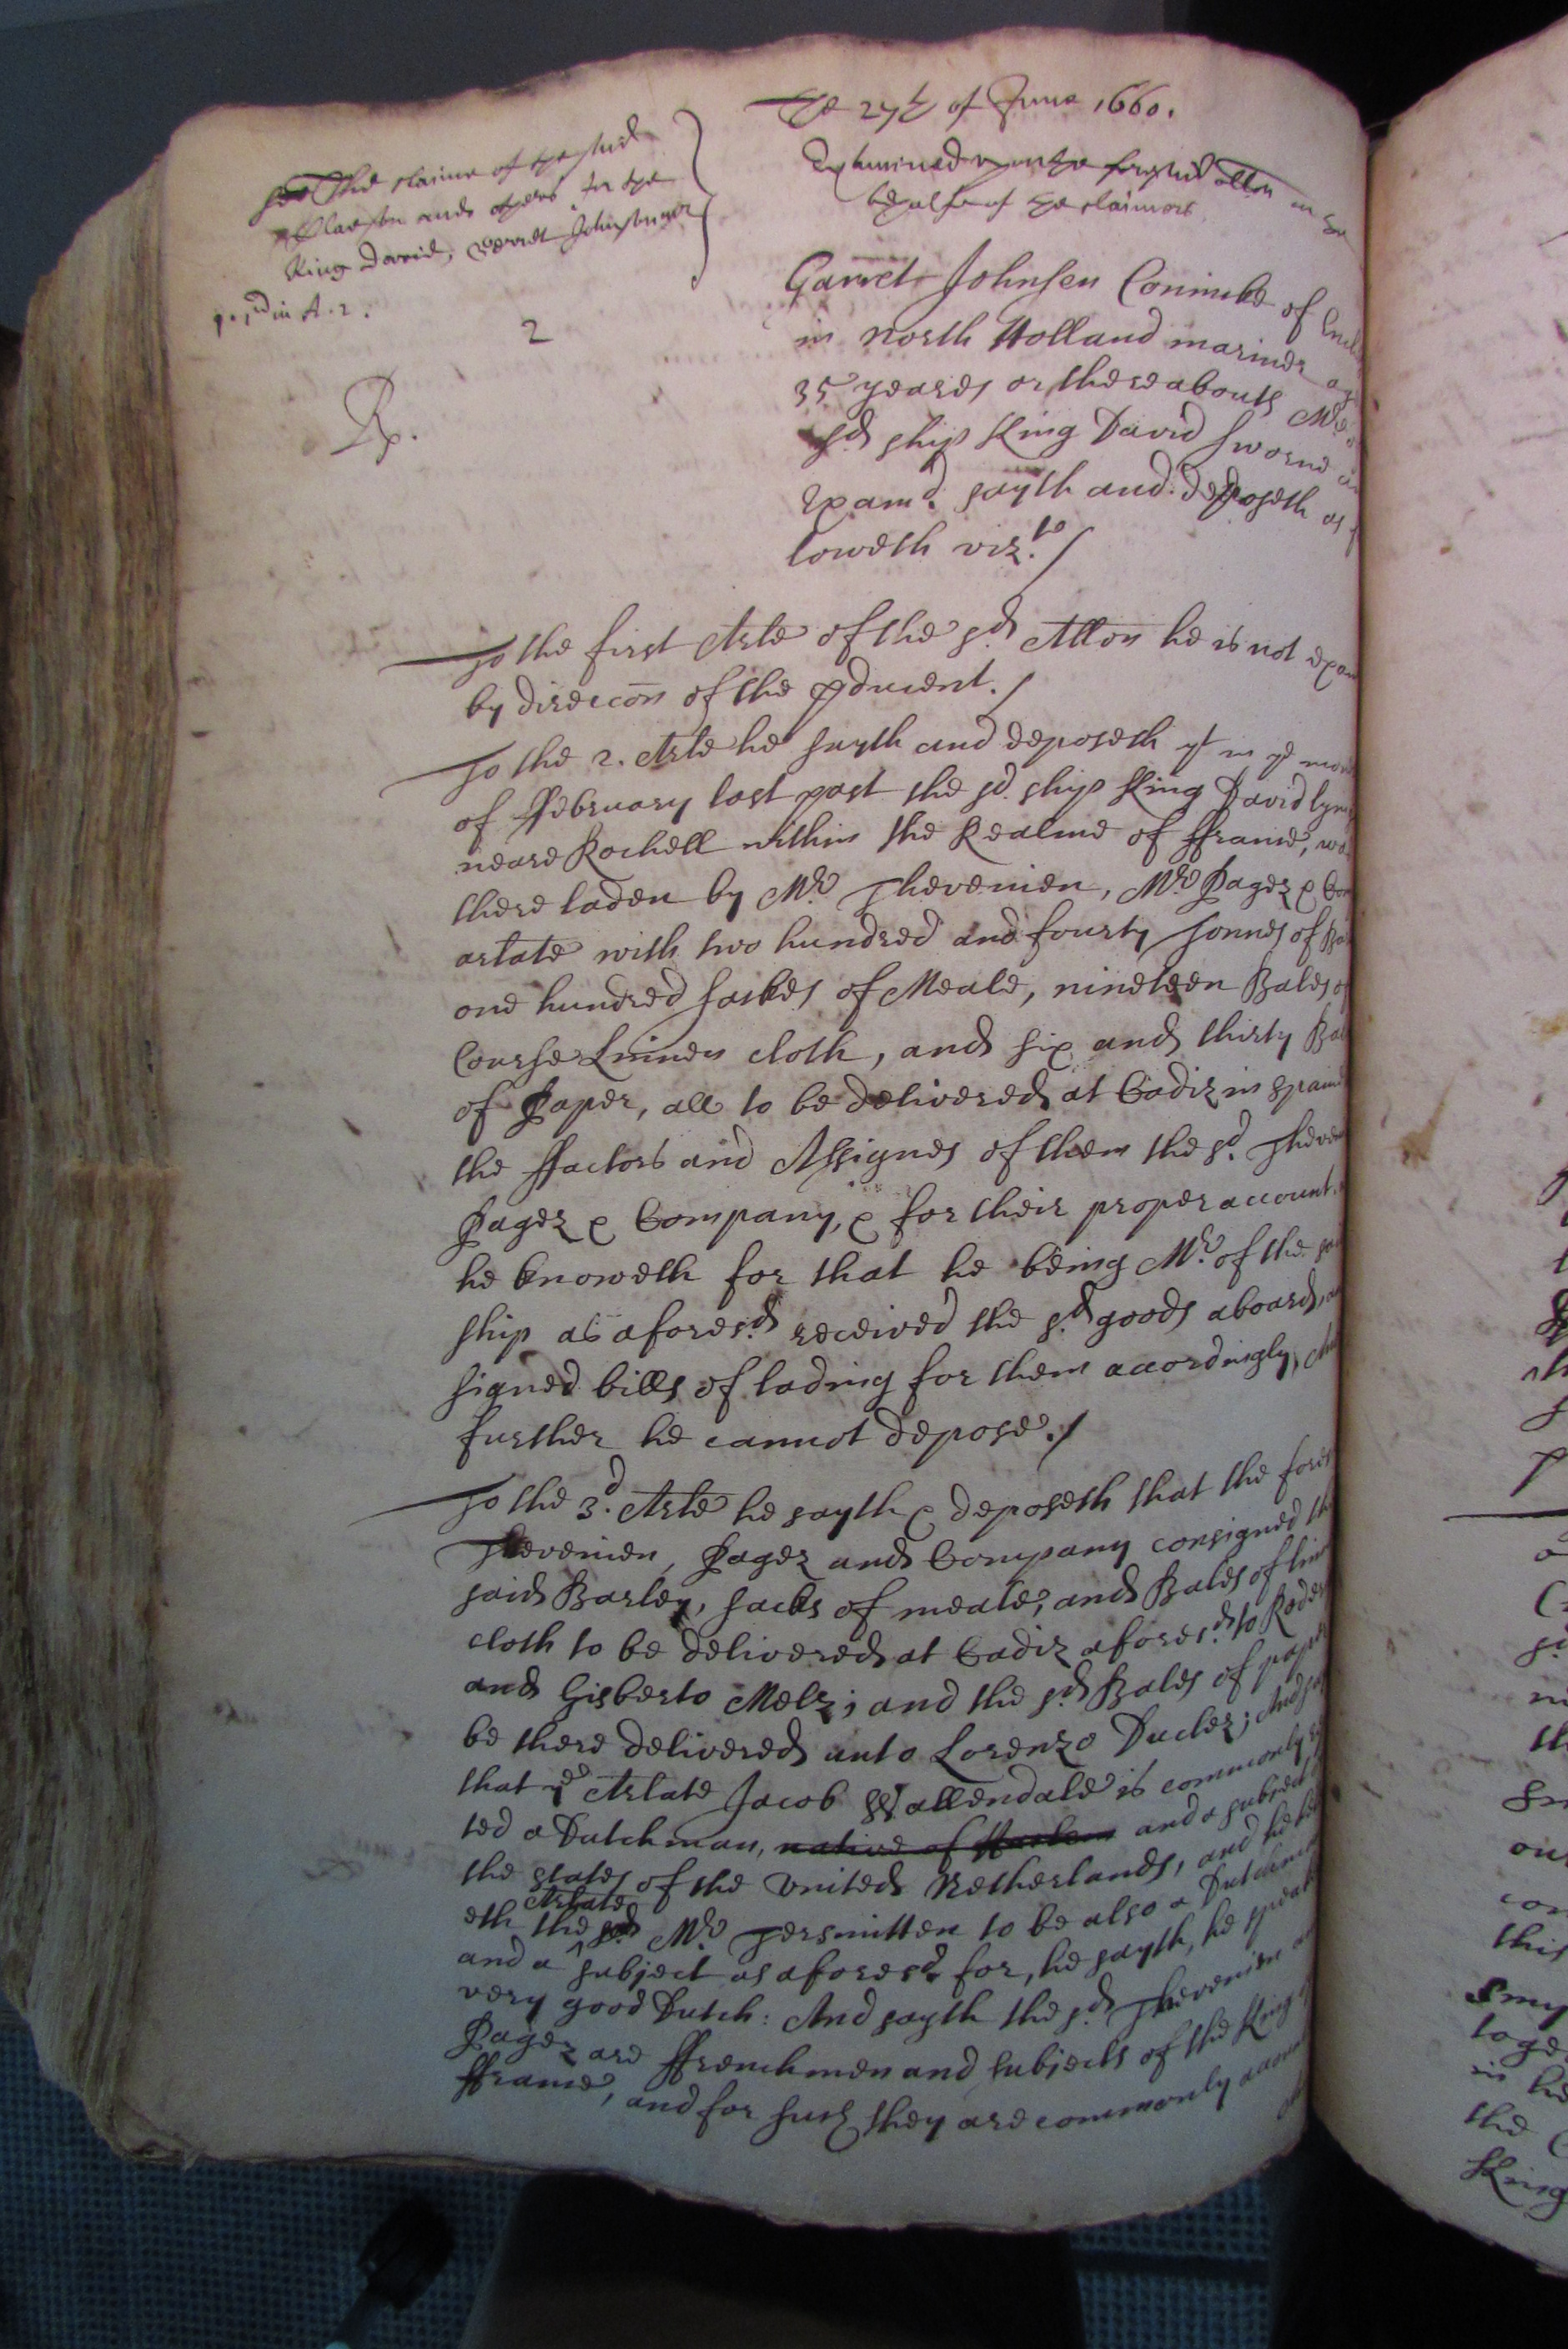 The 27th of June 1660.
Examined upon the foresaid allon in the
behalfe of the claimors.
The claime of the said
and others for the
King David, Gerret Johnson
in A. 2.
2
Rp.
Garret Johnsen Coninike of
in north Holland mariner
35 yeares or thereabouts Mr.
sd ship King David sworne
Examd. sayth and deposeth as
loweth vizt./
To the first Arle of the sd. Allon he is not
by direccon of the pducent./
To the 2. Arle he sayth and deposeth yt in ye
of ffebruary last past the sd. ship King David
neare Rochell within the Realme of ffrance,
there laden by Mr. Thevenien, Mr. Pagez &
arlate with two hundred and fourty tonnes of
one hundred sackes of Meale, nineteen Bales
Course Linnen cloth, and six and thirty
of Paper, all to be delivered at Cadiz in
the ffactors and Assignes of them the sd.
Pagez & Company, & for their proper account,
he knoweth for that he being Mr. of the
ship as aforesd. received the sd. goods aboard,
signed bills of lading for them accordingly,
further he cannot depose./
To the 3d. Arle he sayth & deposeth that the
Thevenien, Pagez and Company consigned
said Barley, sacks of meale, and Bales of
cloth to be delivered at Cadiz aforesd. to
and Gisberto Melz; and the sd. Bales of
be there delivered unto Lorenzo Duclez;
that ye Arlate Jacob Wallendale is commonly
ted a Dutchman, native of Harlem and a subject
the states of the united Netherlands, and he
Arlate
eth the sd. Mr. Tersmitten to be also a
and a subject as aforesd. for, he sayth, he
very good Dutch: And sayth the sd. Thevenien
Pagez are ffrenchmen and subjects of the King
ffrance, and for such they are commonly